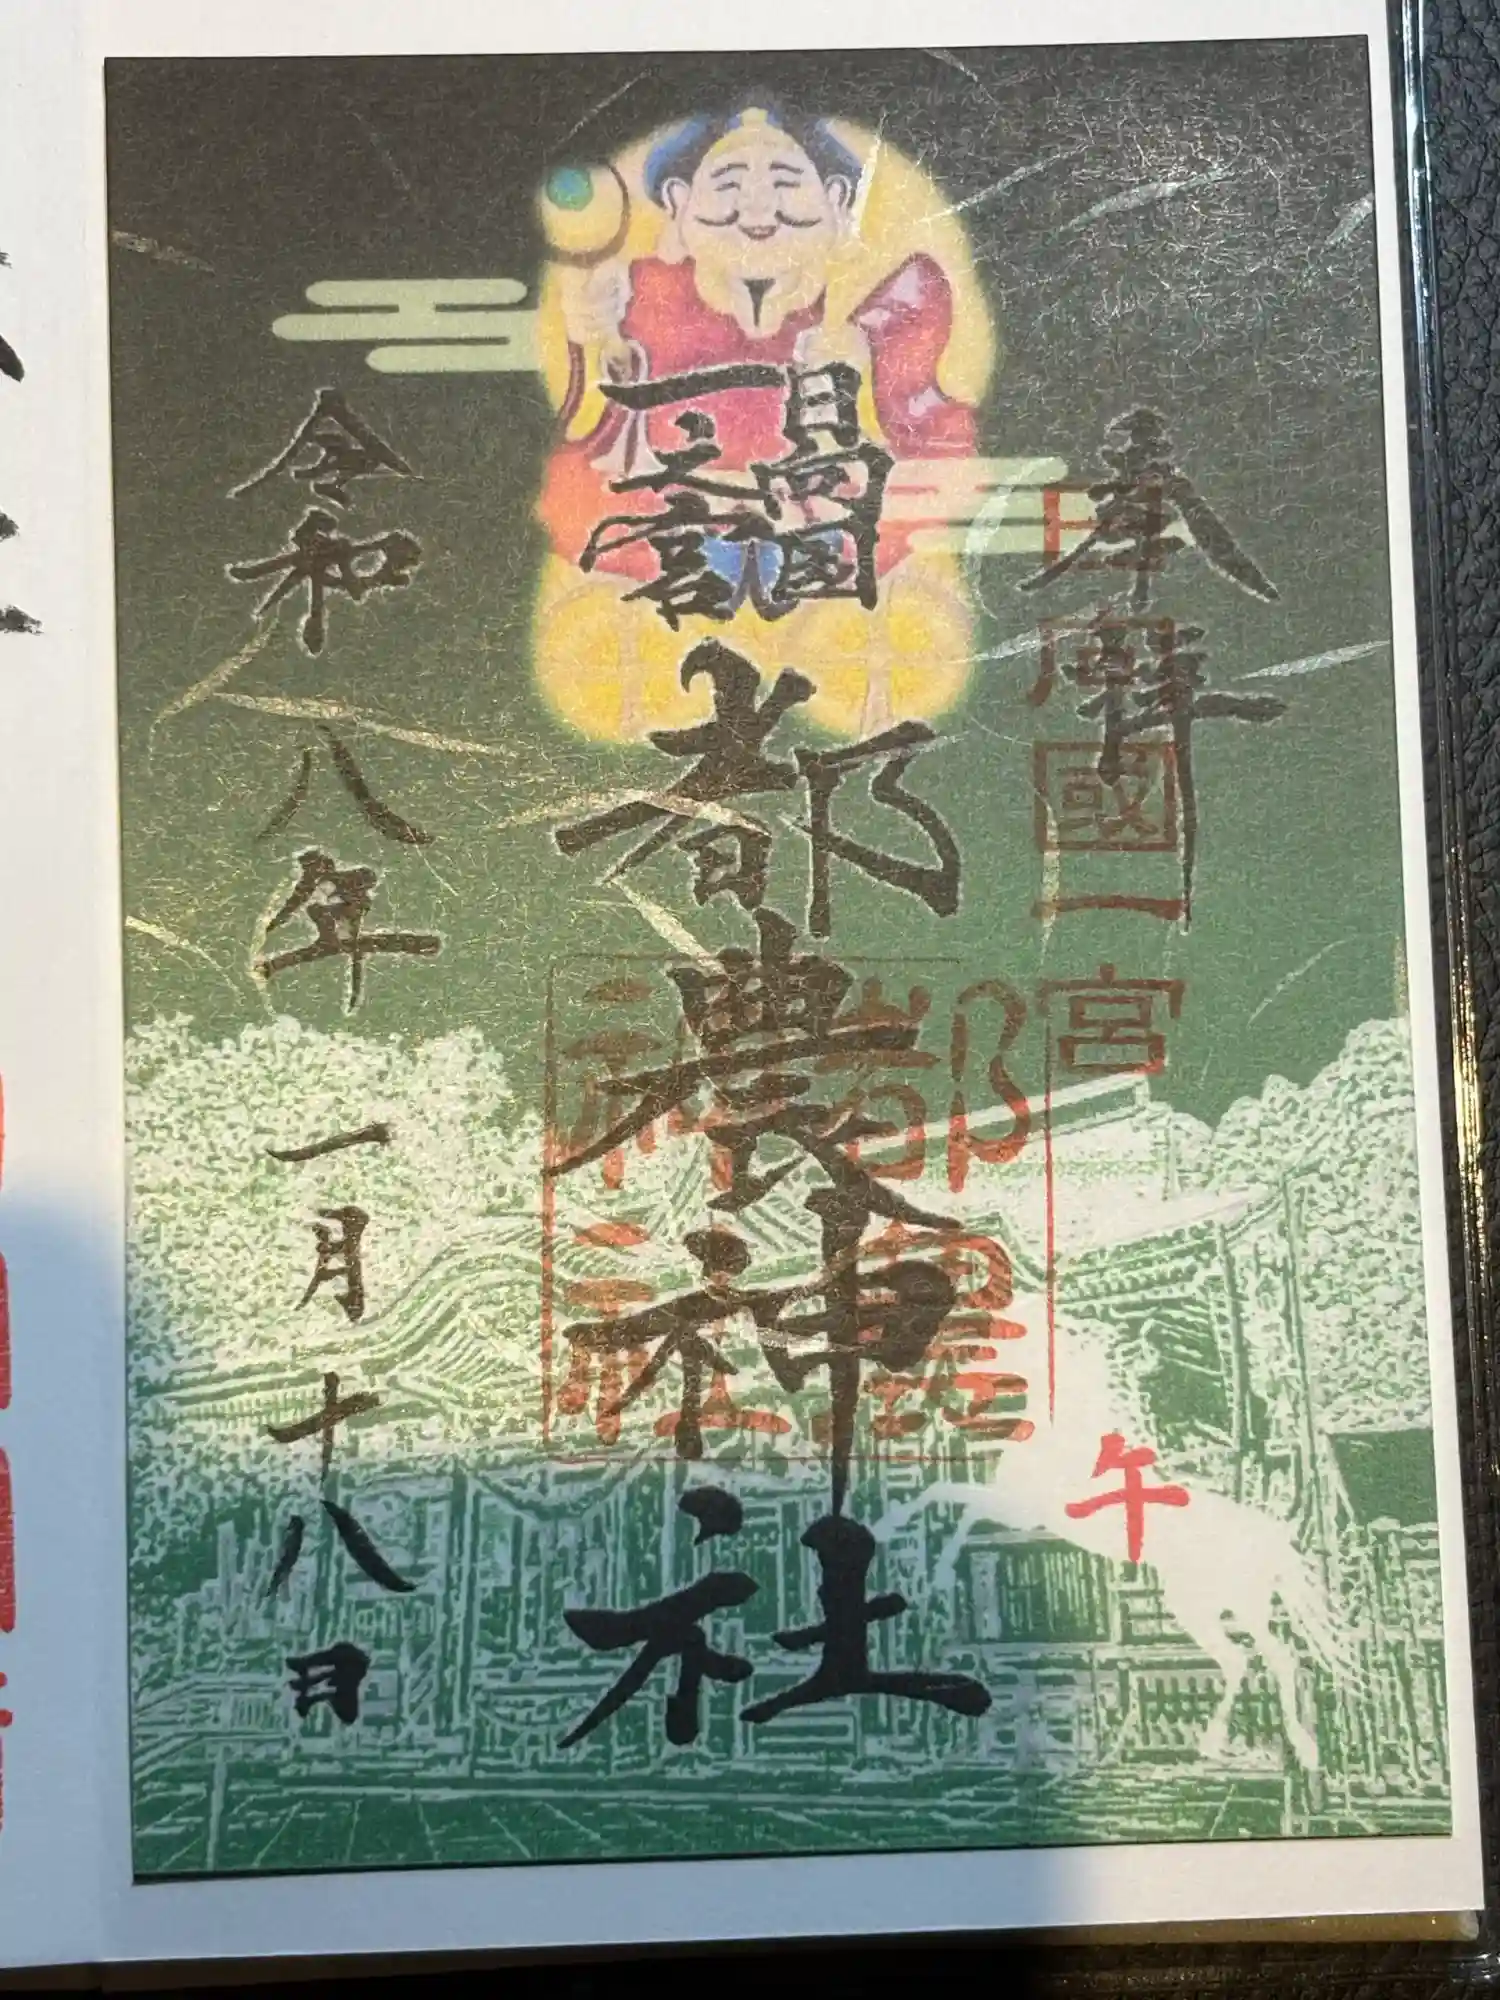 奉拝
日向國一宮
日向国
一之宮
都農神社
都農
神社
午
令和八年一月十八日